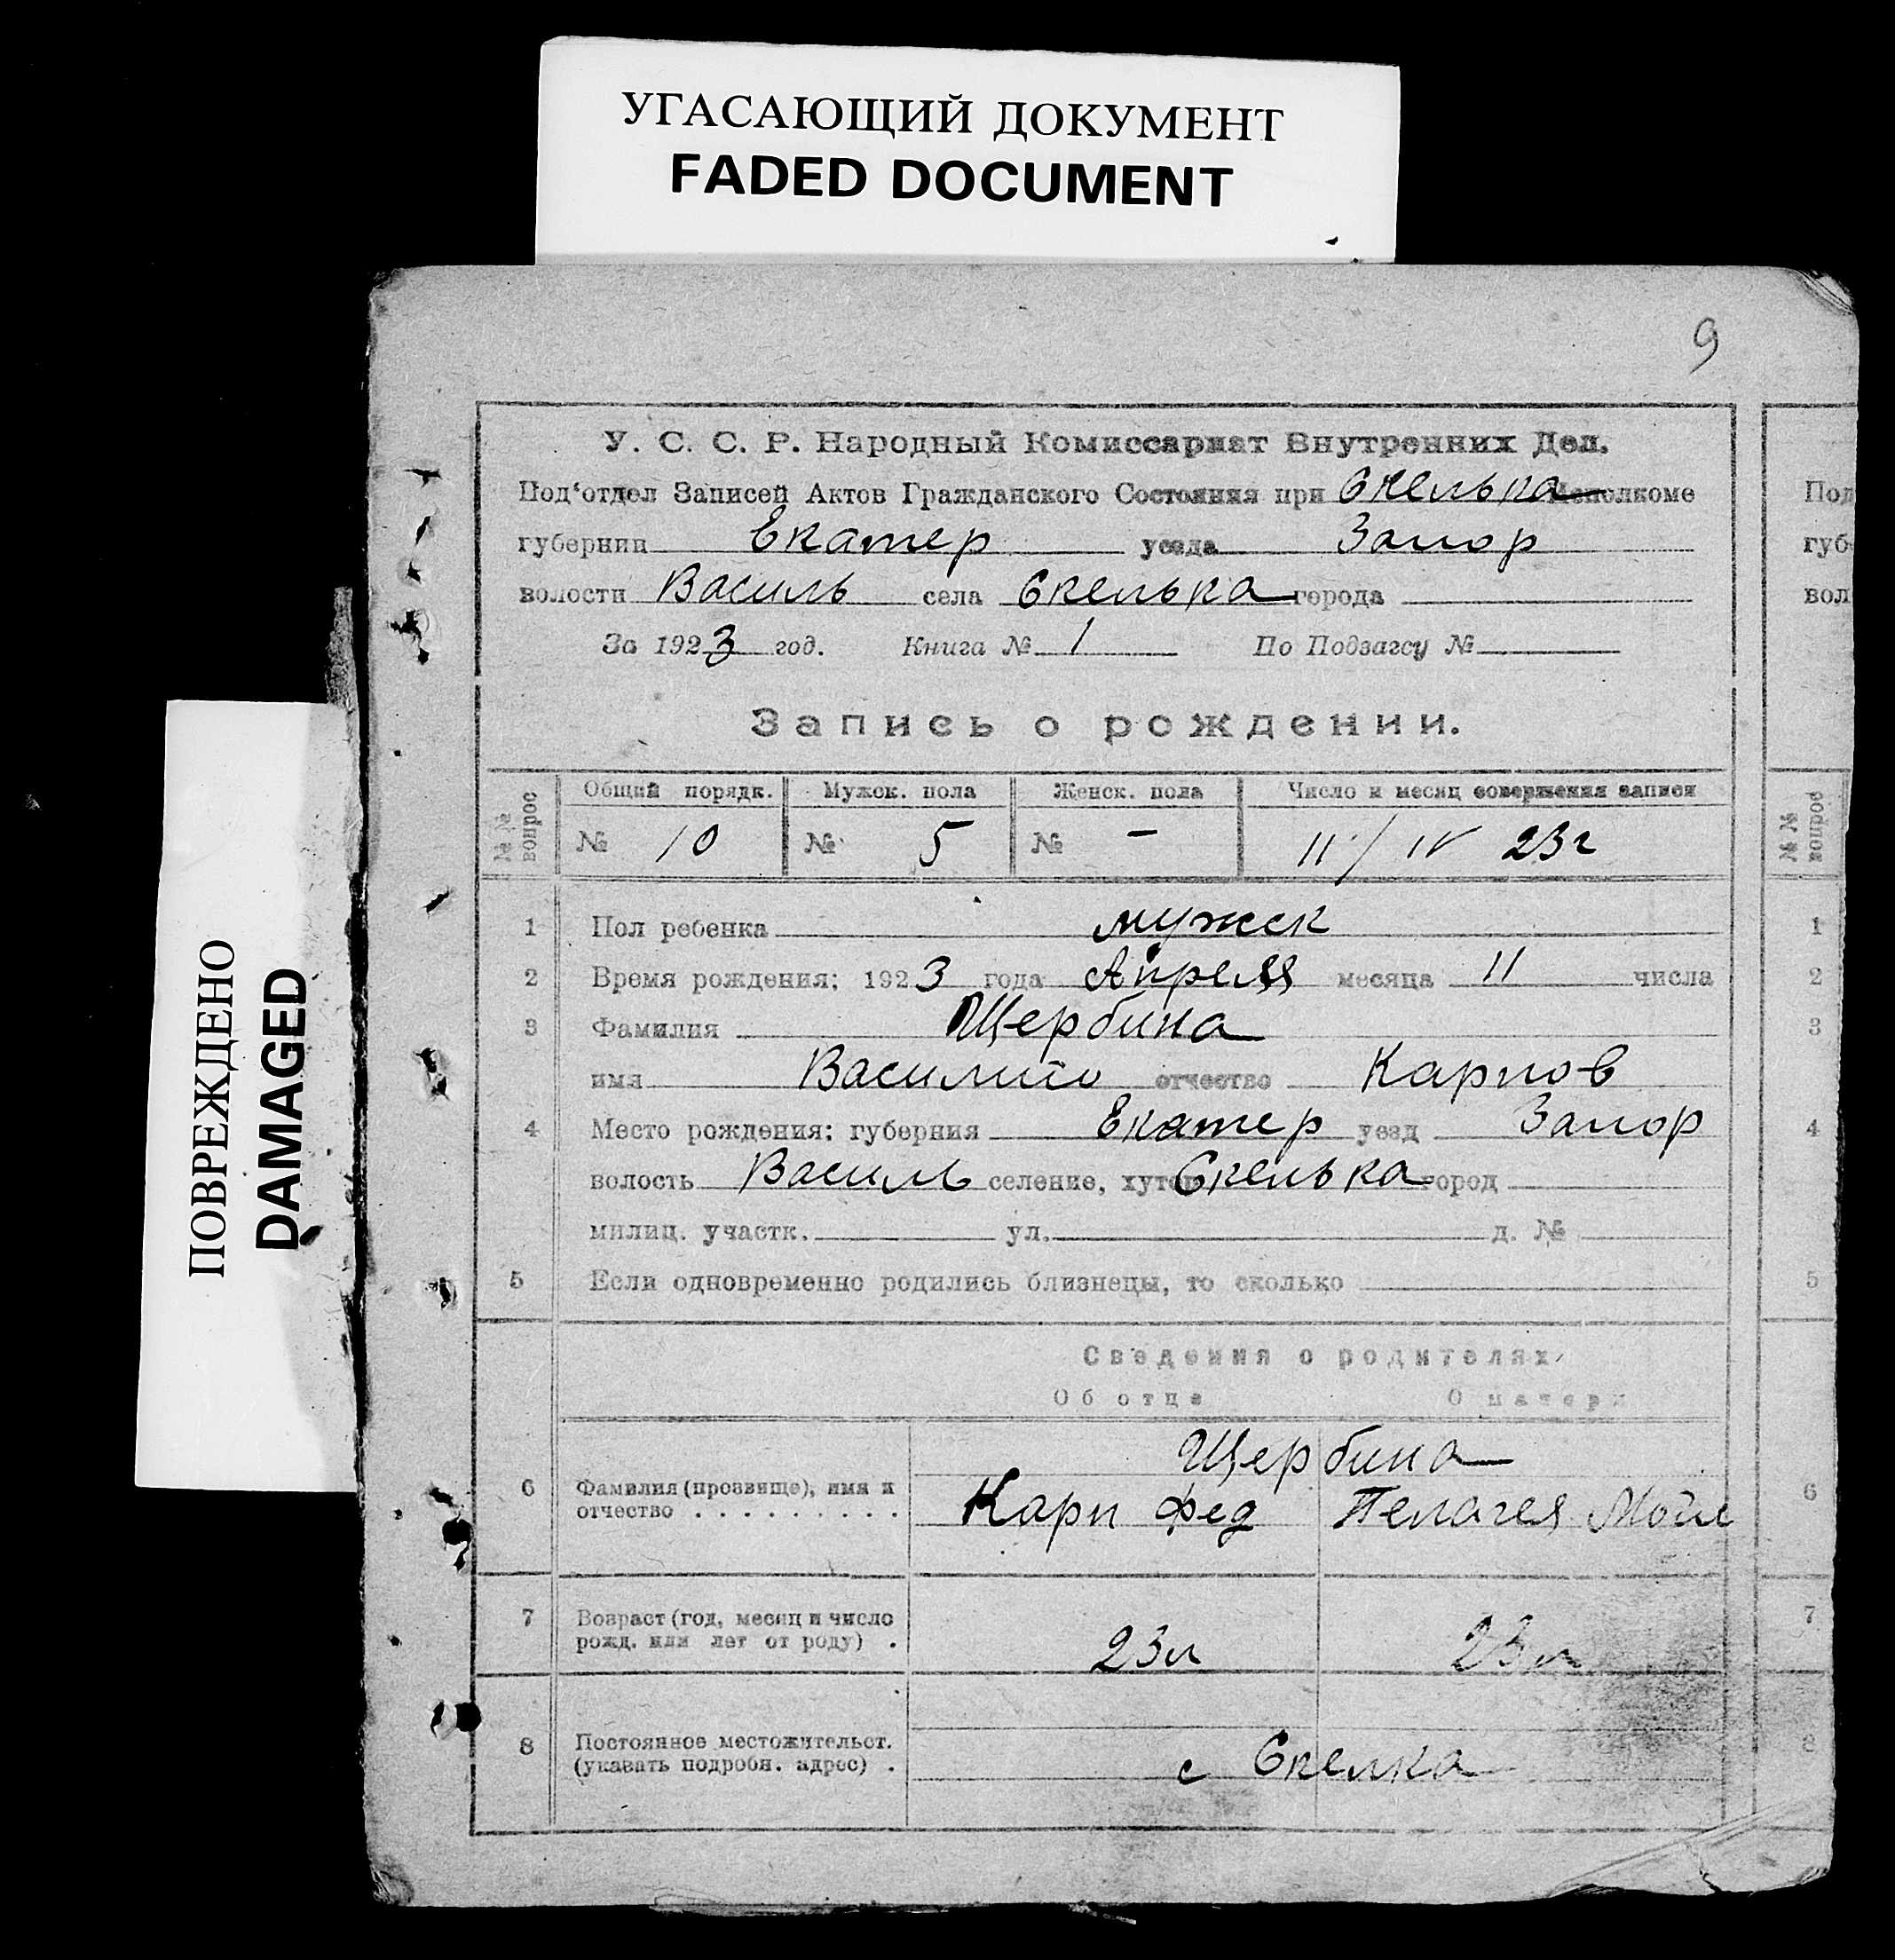 УГАСАЮЩИЙ ДОКУМЕНТ
FADED DOCUMENT
ПОВРЕЖДЕНО
DAMAGED
9
У. С. С. Р. Народный Комиссариат Внутренних Дел.
Под‘отдел Записей Актов Гражданского Состояния при Скелька Исполкоме
губернии Екатер уезда Запор
волости Василь села Скелька города
За 1923 год. Книга № 1 По Подзагсу №
Запись о рождении.
№ № вопрос Общий порядк. Мужск. пола Женск. пола Число и месяц совершения записи
№ 10 № 5 № - 11/IV 23г
1 Пол ребенка мужск
2 Время рождения: 1923 года Апреля месяца 11 числа
3 Фамилия Щербина
имя отчество Карпов
4 Место рождения: губерния Екатер уезд Запор
волость Василь селение, хутор Скелька город
милиц. участк. ул. д. №
5 Если одновременно родились близнецы, то сколько
Сведения о родителях
Об отце О матери
Щербина
6 Фамилия (прозвище), имя и
отчество . . . . . . . . . Карп Фед Пелагея
7 Возраст (год, месяц и число
рожд. или лет от роду) . 23л 23л
8 Постоянное местожительст.
(указать подробн. адрес) . с Скелка
Под
губ
вол
№ № вопрос
1
2
3
4
5
6
7
8